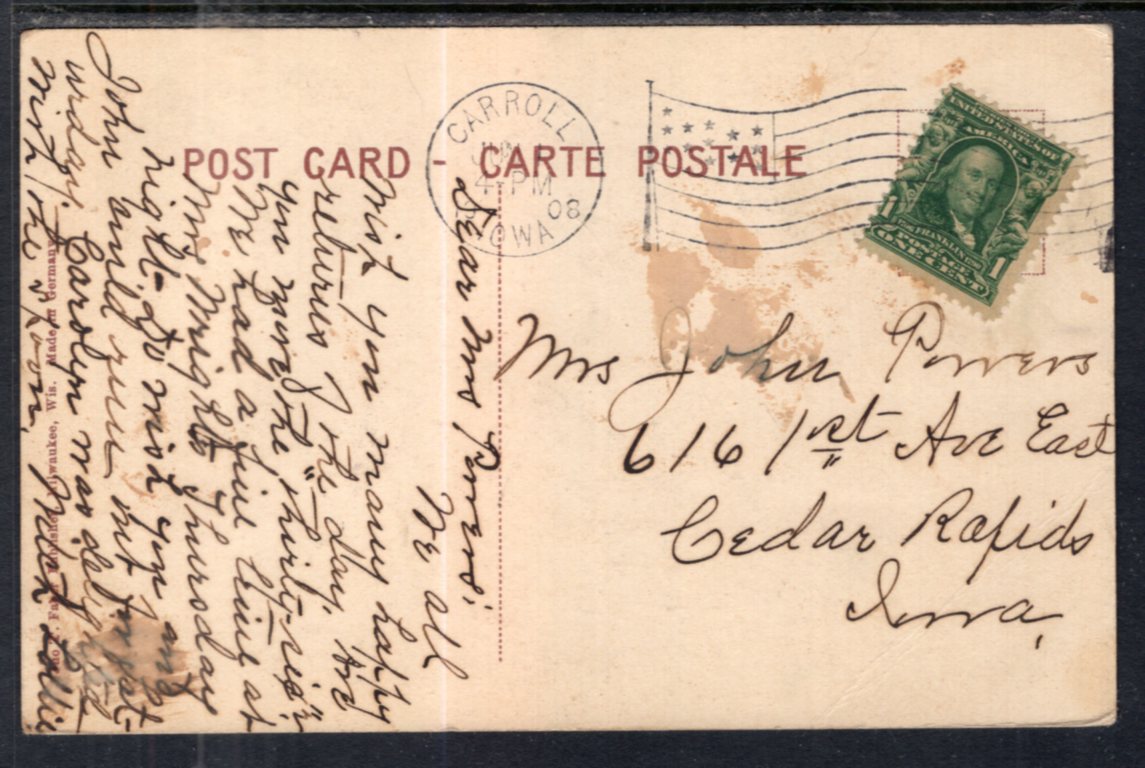 POST CARD - CARTE POSTALE
CARROLL
JUN
4-PM
08
IOWA
UNITED STATES OF
AMERICA
1
FRANKLIN
POSTAGE
ONE CENT
1
Mrs John Powers
616 1st Ave East
Cedar Rapids
Iowa,
Dear Mrs Powers:
We all
wish you many happy
returns of the day. Are
you giving the "thirty-six"?
We had a fine time at
Mrs Wright Thursday
night. Do wish you and
John could run out Sat-
urday. Carolyn was delighted
with the spoon, With Love
Made in Germany
Publisher, Milwaukee, Wis.